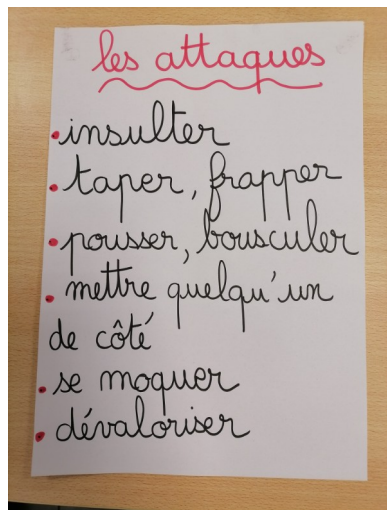 les attaques
• insulter
• taper, frapper
• pousser, bousculer
• mettre quelqu'un
de côté
• se moquer
• dévaloriser